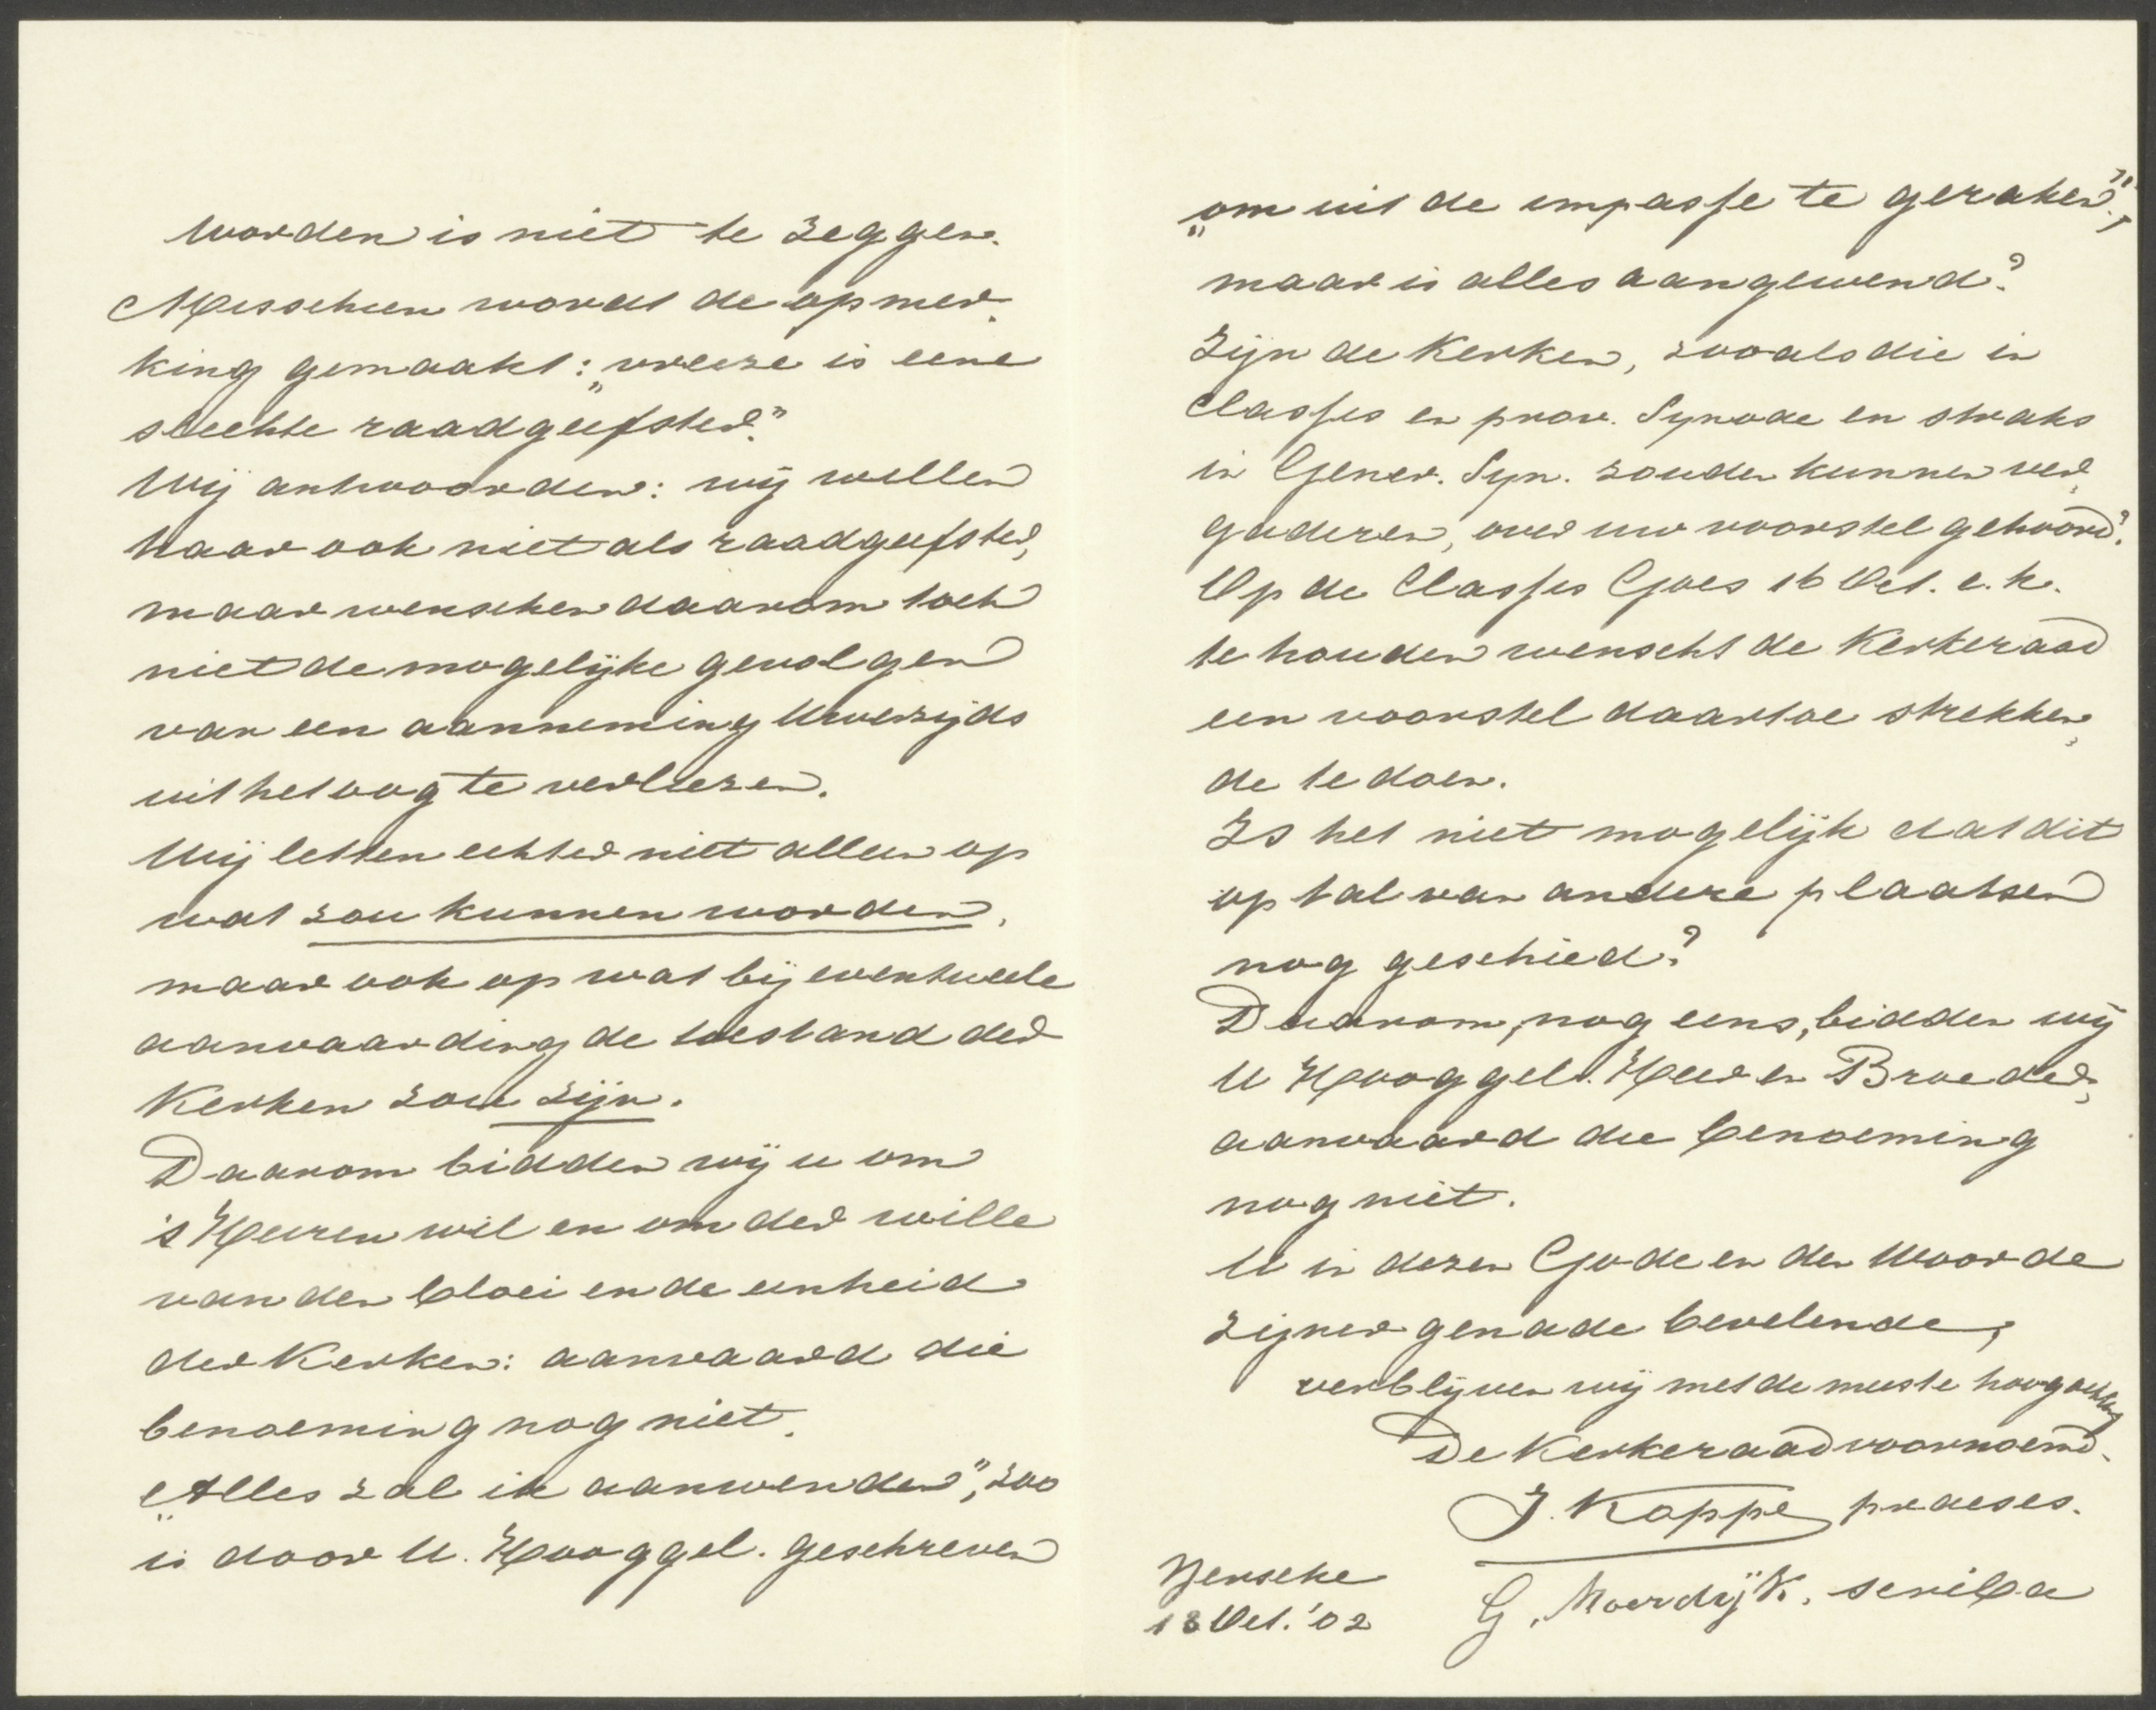 worden is niet te zeggen.
Misschien wordt de opmer-
king gemaakt: „vreeze is eene
slechte raadgeefster."
Wij antwoorden: wij willen
haar ook niet als raadgeefster,
maar wenschen daarom toch
niet de mogelijke gevolgen
van een aanneming Uwerzijds
uit het oog te verliezen.
Wij letten echter niet alleen op
wat zou kunnen worden,
maar ook op wat bij eventueele
aanvaarding de toestand der
Kerken zou zijn.
Daarom bidden wij u om
's Heeren wil en om der wille
van den bloei en de eenheid
der Kerken: aanvaard die
benoeming nog niet.
„Alles zal ik aanwenden", zoo
is door U. Hooggel. geschreven
„om uit de impasse te geraken",
maar is alles aangewend?
Zijn de Kerken, zooals die in
Classes en prov. Synode en straks
in Gener. Syn. zouden kunnen ver-
gaderen, over uw voorstel gehoord?
Op de Classis Goes 16 Oct. e.k.
te houden wenscht de Kerkeraad
een voorstel daartoe strekken-
de te doen.
Is het niet mogelijk dat dit
op tal van andere plaatsen
nog geschied?
Daarom, nog eens, bidden wij
U Hooggel. Heer en Broeder,
aanvaard die benoeming
nog niet.
U in dezen Gode en den Woorde
Zijner genade bevelende,
verblijven wij met de meeste hoogachting
De Kerkeraad voornoemd.
J. Koppe praeses.
Yerseke
G. Moerdijk, scriba
13 Oct. '02